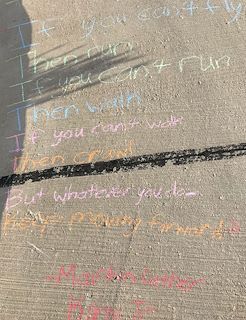 If you can't fly
Then run
If you can't run
Then walk
If you can't walk
Then crawl
But whatever you do
Keep moving forward
- Martin Luther
King Jr